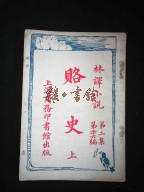 林譯小說
第二集
第六編
賂史 上
上海商務印書館出版